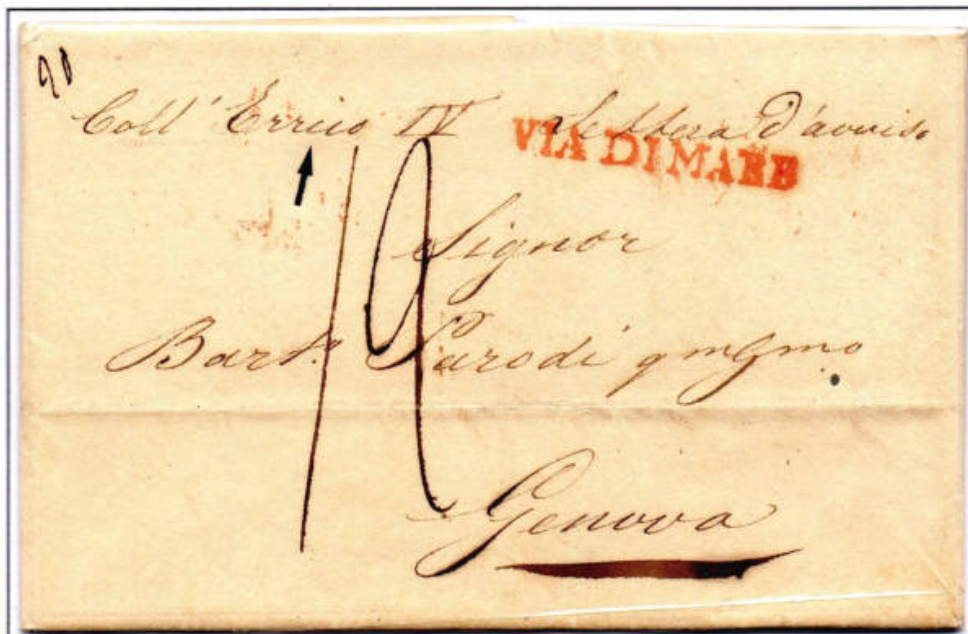 20
Coll' Errico IV Lettera d'avviso
VIA DI MARE
12
Signor
Bart.º Parodi
Genova